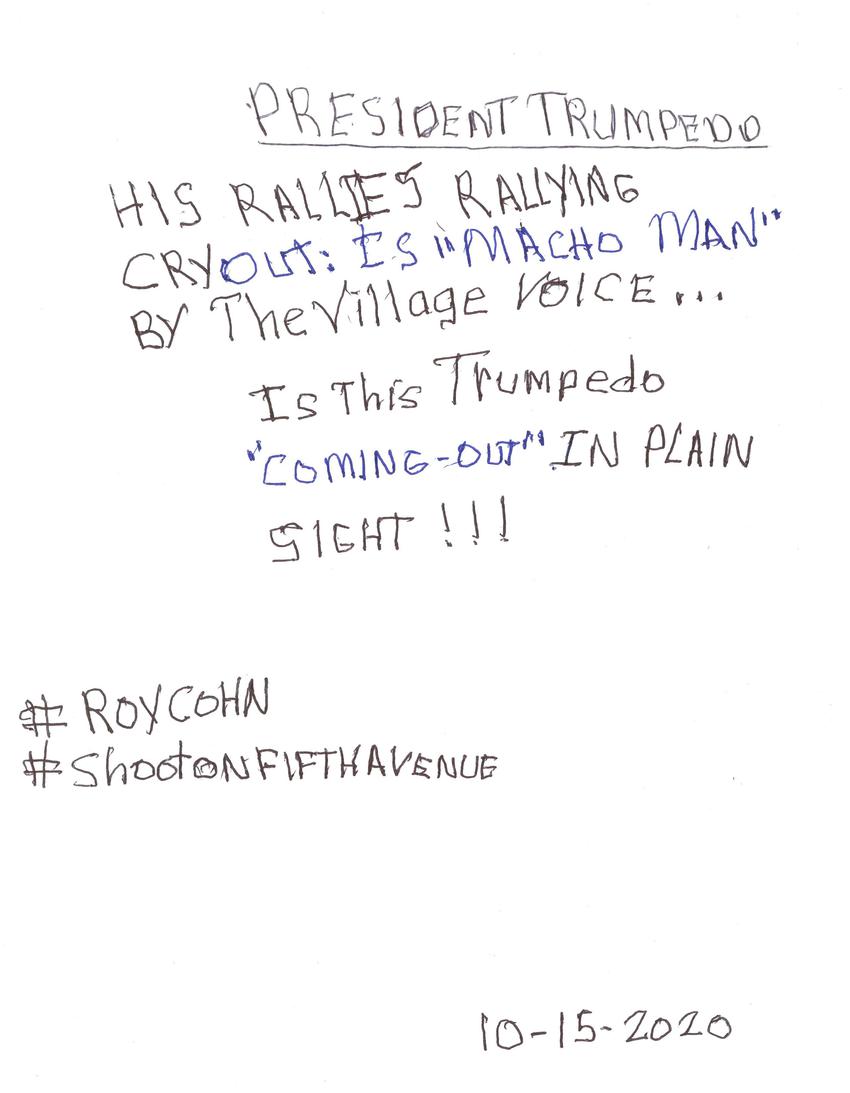 PRESIDENT TRUMPEDO
HIS RALLIES RALLYING
CRYOUT: IS "MACHO MAN"
BY The Village VOICE...
Is This Trumpedo
"COMING-OUT" IN PLAIN
SIGHT!!!
# ROYCOHN
# ShootONFIFTHAVENUE
10-15-2020